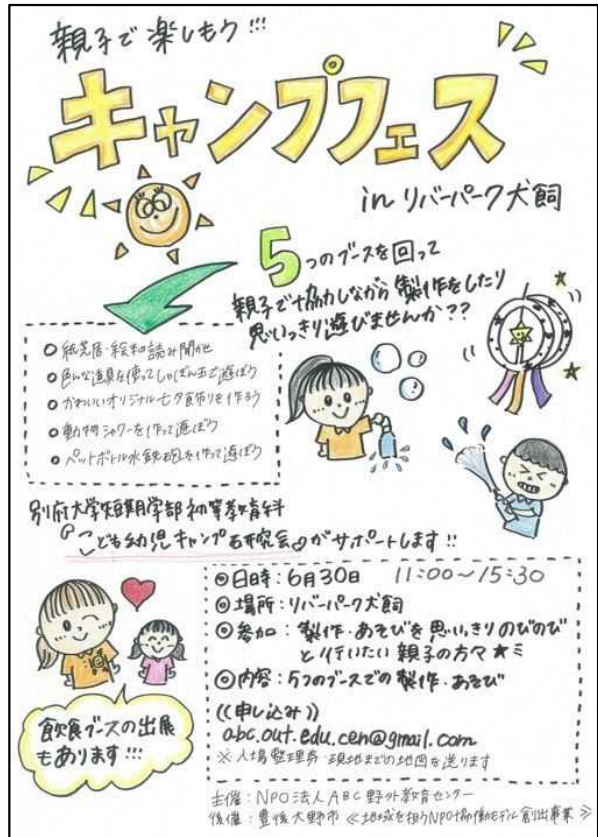 親子で楽しもう!!!
キャンプフェス
in リバーパーク犬飼
5つのブースを回って
親子で協力しながら製作をしたり
思いっきり遊びませんか??
○ 紙芝居・絵本の読み聞かせ
○ 色んな道具を使ってしゃぼん玉で遊ぼう
○ かわいいオリジナル七夕飾りを作ろう
○ 動物シャワーを作って遊ぼう
○ ペットボトル水鉄砲を作って遊ぼう
別府大学短期大学部 初等教育科
『こども幼児キャンプ研究会』がサポートします!!
◎日時:6月30日 11:00〜15:30
◎場所:リバーパーク犬飼
◎参加:製作・あそびを思いっきりのびのび
と行いたい親子の方々★ミ
◎内容:5つのブースでの製作・あそび
《申し込み》
abc.out.edu.cen@gmail.com
※入場整理券・現地までの地図を送ります
飲食ブースの出展
もあります!!!
主催:NPO法人ABC野外教育センター
後援:豊後大野市 ≪地域を担うNPO協働モデル創出事業≫